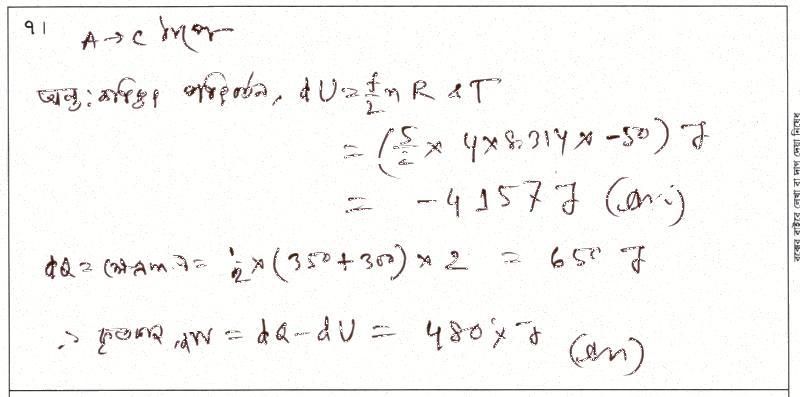 ৭।
A → C
অন্তঃশক্তির পরিবর্তন, dU = f/2 n R dT
= (5/2 × 4 × 8.314 × -50) J
= -4157 J (Ans.)
dQ = = 1/2 × (350 + 300) × 2 = 650 J
∴ কৃতকাজ, dW = dQ - dU = 4807 J (Ans)
বক্সের বাইরে লেখা বা দাগ দেয়া নিষেধ